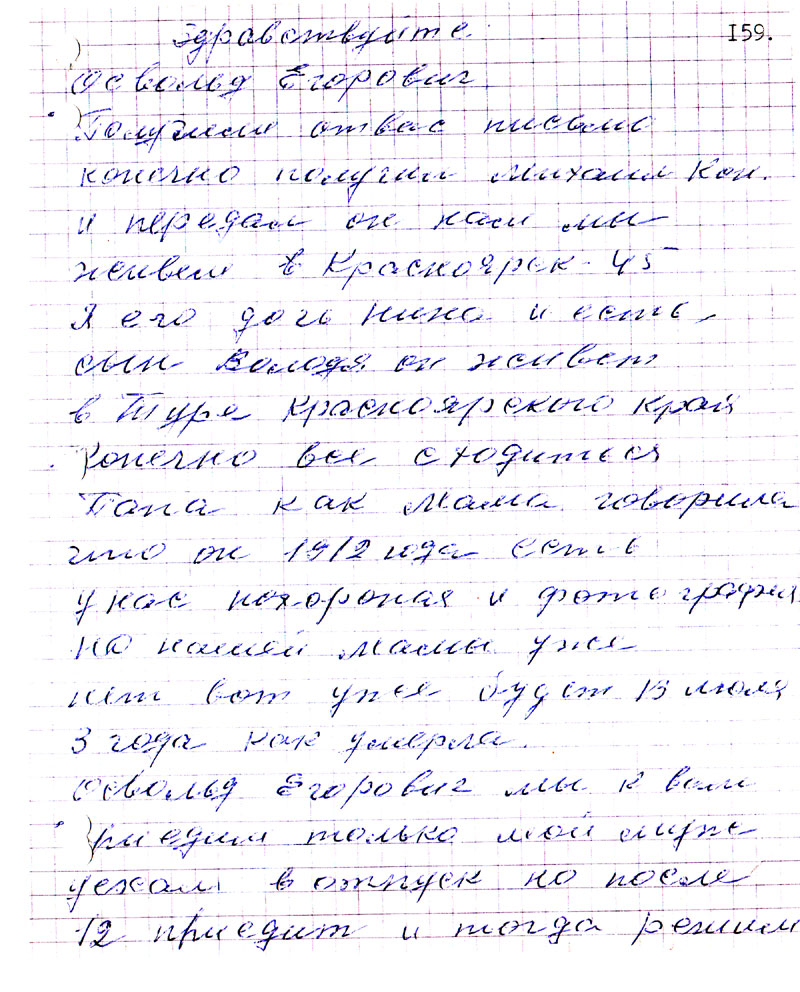 Здравствуйте. 159.
Освольд Егорович
Получили отвас письмо
конечно получил Михаил Кон.
и передал он нам мы
живем в Красноярск-45
Я его дочь Нина и есть
сын Володя он живет
в Туре Красноярского край
Конечно все сходиться
Папа как Мама говорила
что он 1912 года есть
у нас похороная и фотография
но нашей мамы уже
нет вот уже будет 13 июля
3 года как умерла.
Освольд Егорович мы к вам
приедим только мой муже
уехал в отпуск но после
12 приедит и тогда решим